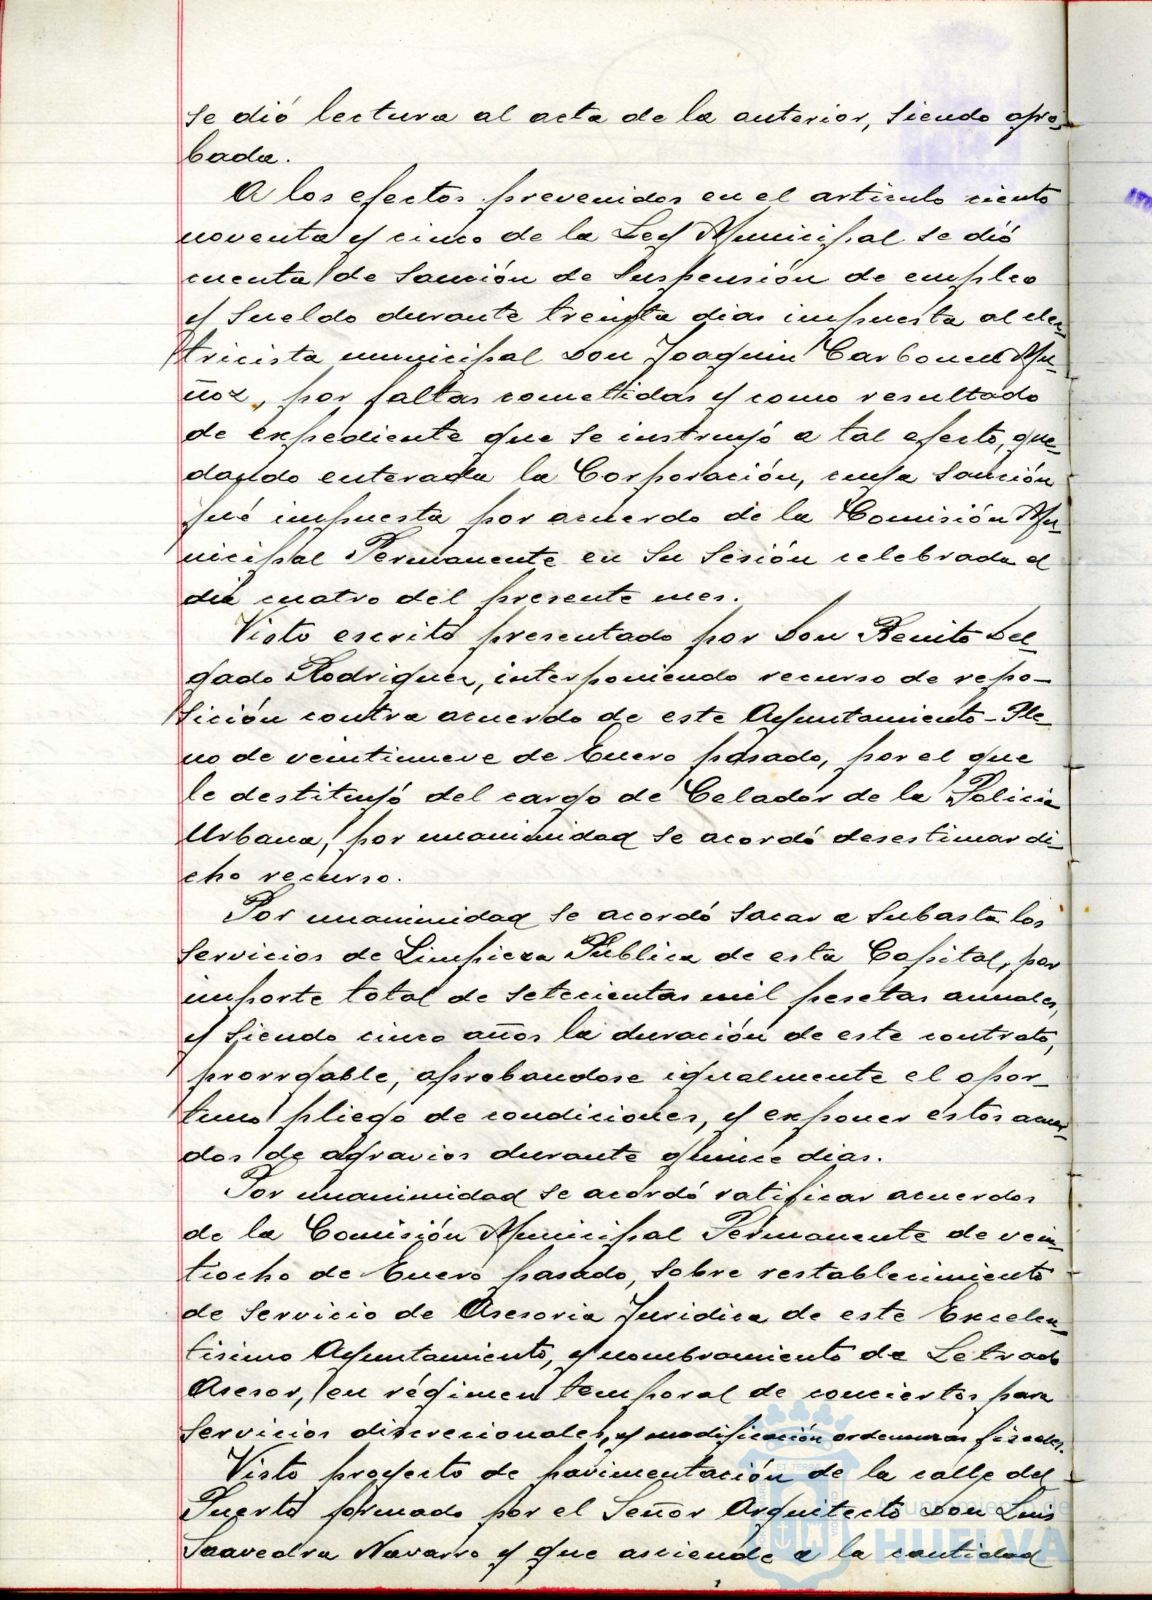 se dió lectura al acta de la anterior, siendo apro-
bada.
A los efectos prevenidos en el articulo ciento
noventa y cinco de la Ley Municipal se dió
cuenta de sanción de suspensión de empleo
y sueldo durante treinta dias impuesta al elec-
tricista municipal Don Joaquin Carbonell Mu-
ñoz, por faltas cometidas y como resultado
de expediente que se instruyó a tal efecto, que-
dando enterada la Corporación, cuya sanción
fué impuesta por acuerdo de la Comisión Mu-
nicipal Permanente en su sesión celebrada el
dia cuatro del presente mes.
Visto escrito presentado por Don Benito Del-
gado Rodriguez, interponiendo recurso de repo-
sición contra acuerdo de este Ayuntamiento-Ple-
no de veintinueve de Enero pasado, por el que
le destituyó del cargo de Celador de la Policia
Urbana, por unanimidad se acordó desestimar di-
cho recurso.
Por unanimidad se acordó sacar a subasta los
servicios de Limpieza Pública de esta Capital, por
importe total de setecientas mil pesetas anuales,
y siendo cinco años la duración de este contrato,
prorrgable, aprobandose igualmente el opor-
tuno pliego de condiciones, y exponer estos acuer-
dos de agravios durante quince dias.
Por unanimidad se acordó ratificar acuerdos
de la Comisión Municipal Permanente de vein-
tiocho de Enero pasado, sobre restablecimiento
de servicio de Asesoria Juridica de este Excelen-
tisimo Ayuntamiento, y nombramiento de Letrado
Asesor, en régimen temporal de conciertos para
servicios discrecionales, y modificación ordenanzas fiscales.
Visto proyecto de pavimentación de la calle del
Puerto formado por el Señor Arquitecto Don Luis
Saavedra Navarro y que asciende a la cantidad
Ayuntamiento de
HUELVA